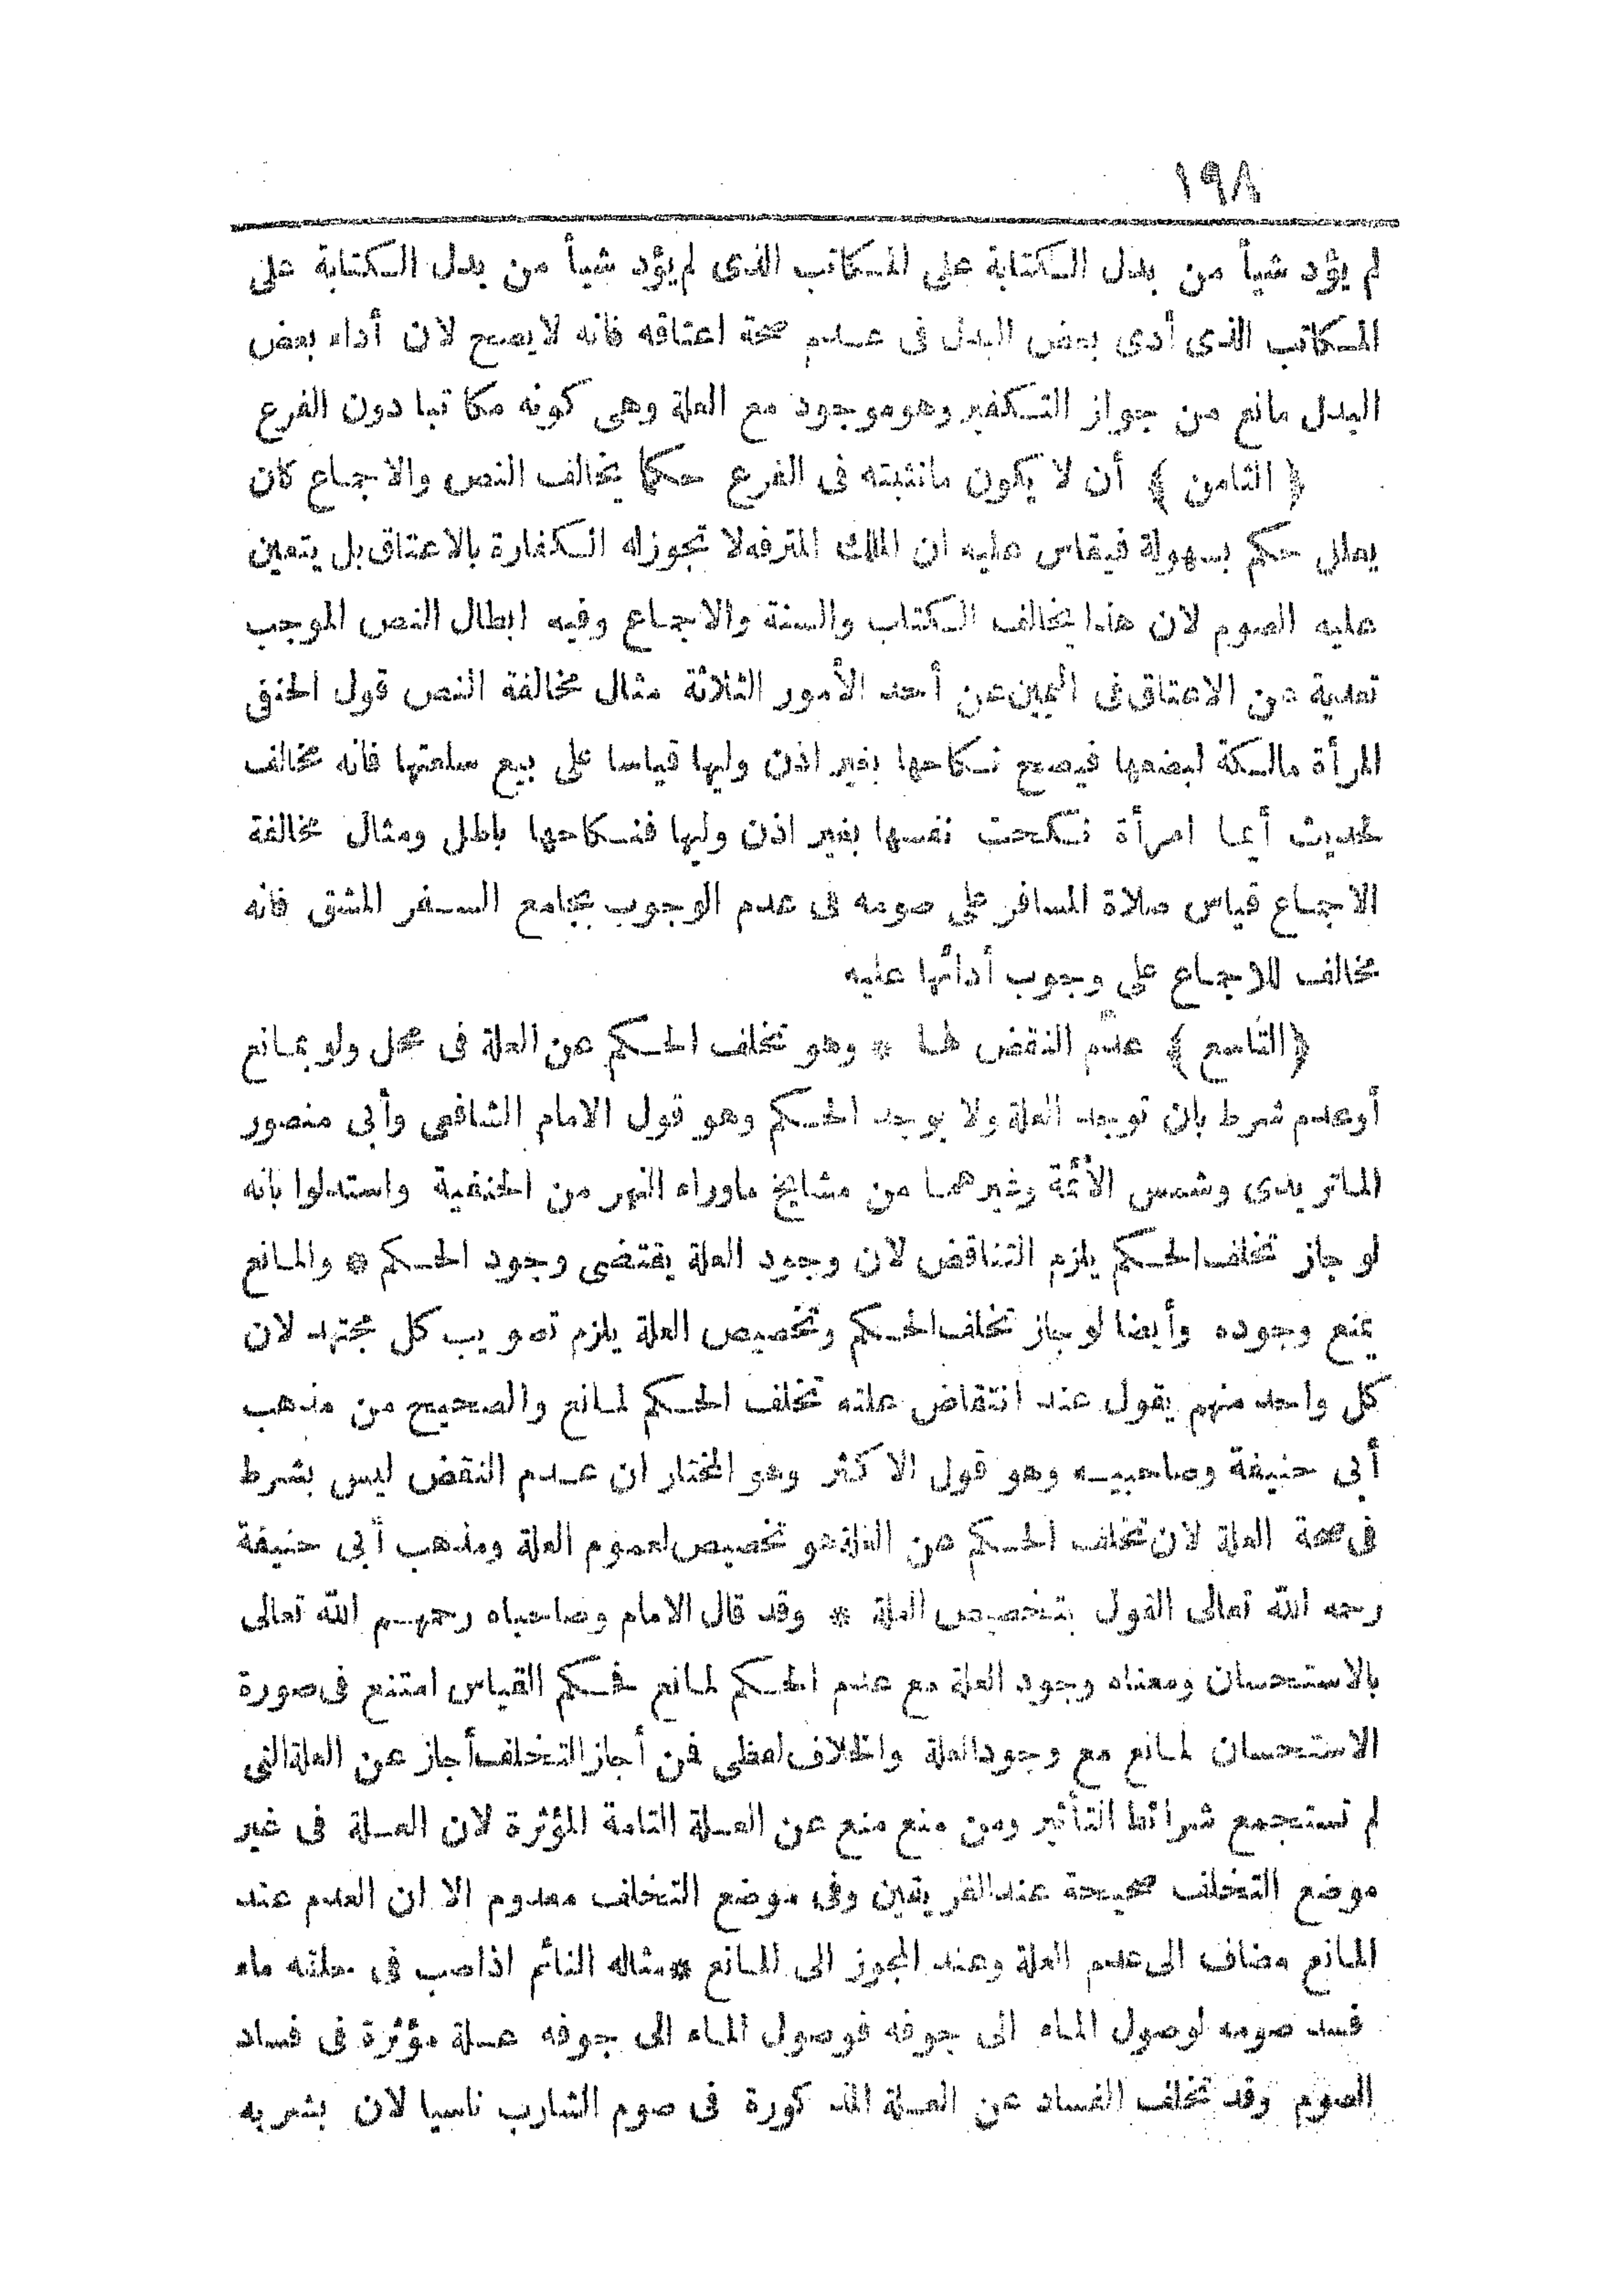 ١٩٨
لم يؤد شيأ من بدل الكتابة على المكاتب الذى لم يؤد شيأ من بدل الكتابة على
المكاتب الذى أدى بعض البدل فى عدم صحة اعتاقه فانه لا يصح لان أداء بعض
البدل مانع من جواز التكفير وهو موجود مع العلة وهى كونه مكاتبا دون الفرع
﴿ الثامن ﴾ أن لا يكون مانثبته فى الفرع حكما يخالف النص والاجماع كان
يعلل حكم بسهولة فيقاس عليه ان الملك المترفه لا تجوز له الكفارة بالاعتاق بل يتعين
عليه الصوم لان هذا يخالف الكتاب والسنة والاجماع وفيه ابطال النص الموجب
تعدية عن الاعتاق فى اليمين عن أحد الأمور الثلاثة مثال مخالفة النص قول الحنفى
المرأة مالكة لبضعها فيصح نكاحها بغير اذن وليها قياسا على بيع سلعتها فانه مخالف
لحديث أيما امرأة نكحت نفسها بغير اذن وليها فنكاحها باطل ومثال مخالفة
الاجماع قياس صلاة المسافر على صومه فى عدم الوجوب بجامع السفر المشق فانه
مخالف للاجماع على وجوب أدائها عليه
﴿ التاسع ﴾ عدم النقض لها * وهو تخلف الحكم عن العلة فى محل ولو بمانع
أو عدم شرط بان توجد العلة ولا يوجد الحكم وهو قول الامام الشافعى وأبى منصور
الماتريدى وشمس الأئمة وغيرهما من مشايخ ماوراء النهر من الحنفية واستدلوا بانه
لو جاز تخلف الحكم يلزم التناقض لان وجود العلة يقتضى وجود الحكم * والمانع
يمنع وجوده وأيضا لو جاز تخلف الحكم وتخصيص العلة يلزم تصويب كل مجتهد لان
كل واحد منهم يقول عند انتقاض علته تخلف الحكم لمانع والصحيح من مذهب
أبى حنيفة وصاحبيه وهو قول الاكثر وهو المختار ان عدم النقض ليس بشرط
فى صحة العلة لان تخلف الحكم عن العلة هو تخصيص لعموم العلة ومذهب أبى حنيفة
رحمه الله تعالى القول بتخصيص العلة * وقد قال الامام وصاحباه رحمهم الله تعالى
بالاستحسان ومعناه وجود العلة مع عدم الحكم لمانع فحكم القياس امتنع فى صورة
الاستحسان لمانع مع وجود العلة والخلاف لفظى فمن أجاز التخلف أجاز عن العلة التى
لم تستجمع شرائط التأثير ومن منع منع عن العلة التامة المؤثرة لان العلة فى غير
موضع التخلف صحيحة عند الفريقين وفى موضع التخلف معدوم الا ان العدم عند
المانع مضاف الى عدم العلة وعند المجوز الى المانع * مثاله النائم اذا صب فى حلقه ماء
فسد صومه لوصول الماء الى جوفه فوصول الماء الى جوفه علة مؤثرة فى فساد
الصوم وقد تخلف الفساد عن العلة المذكورة فى صوم الشارب ناسيا لان بشربه